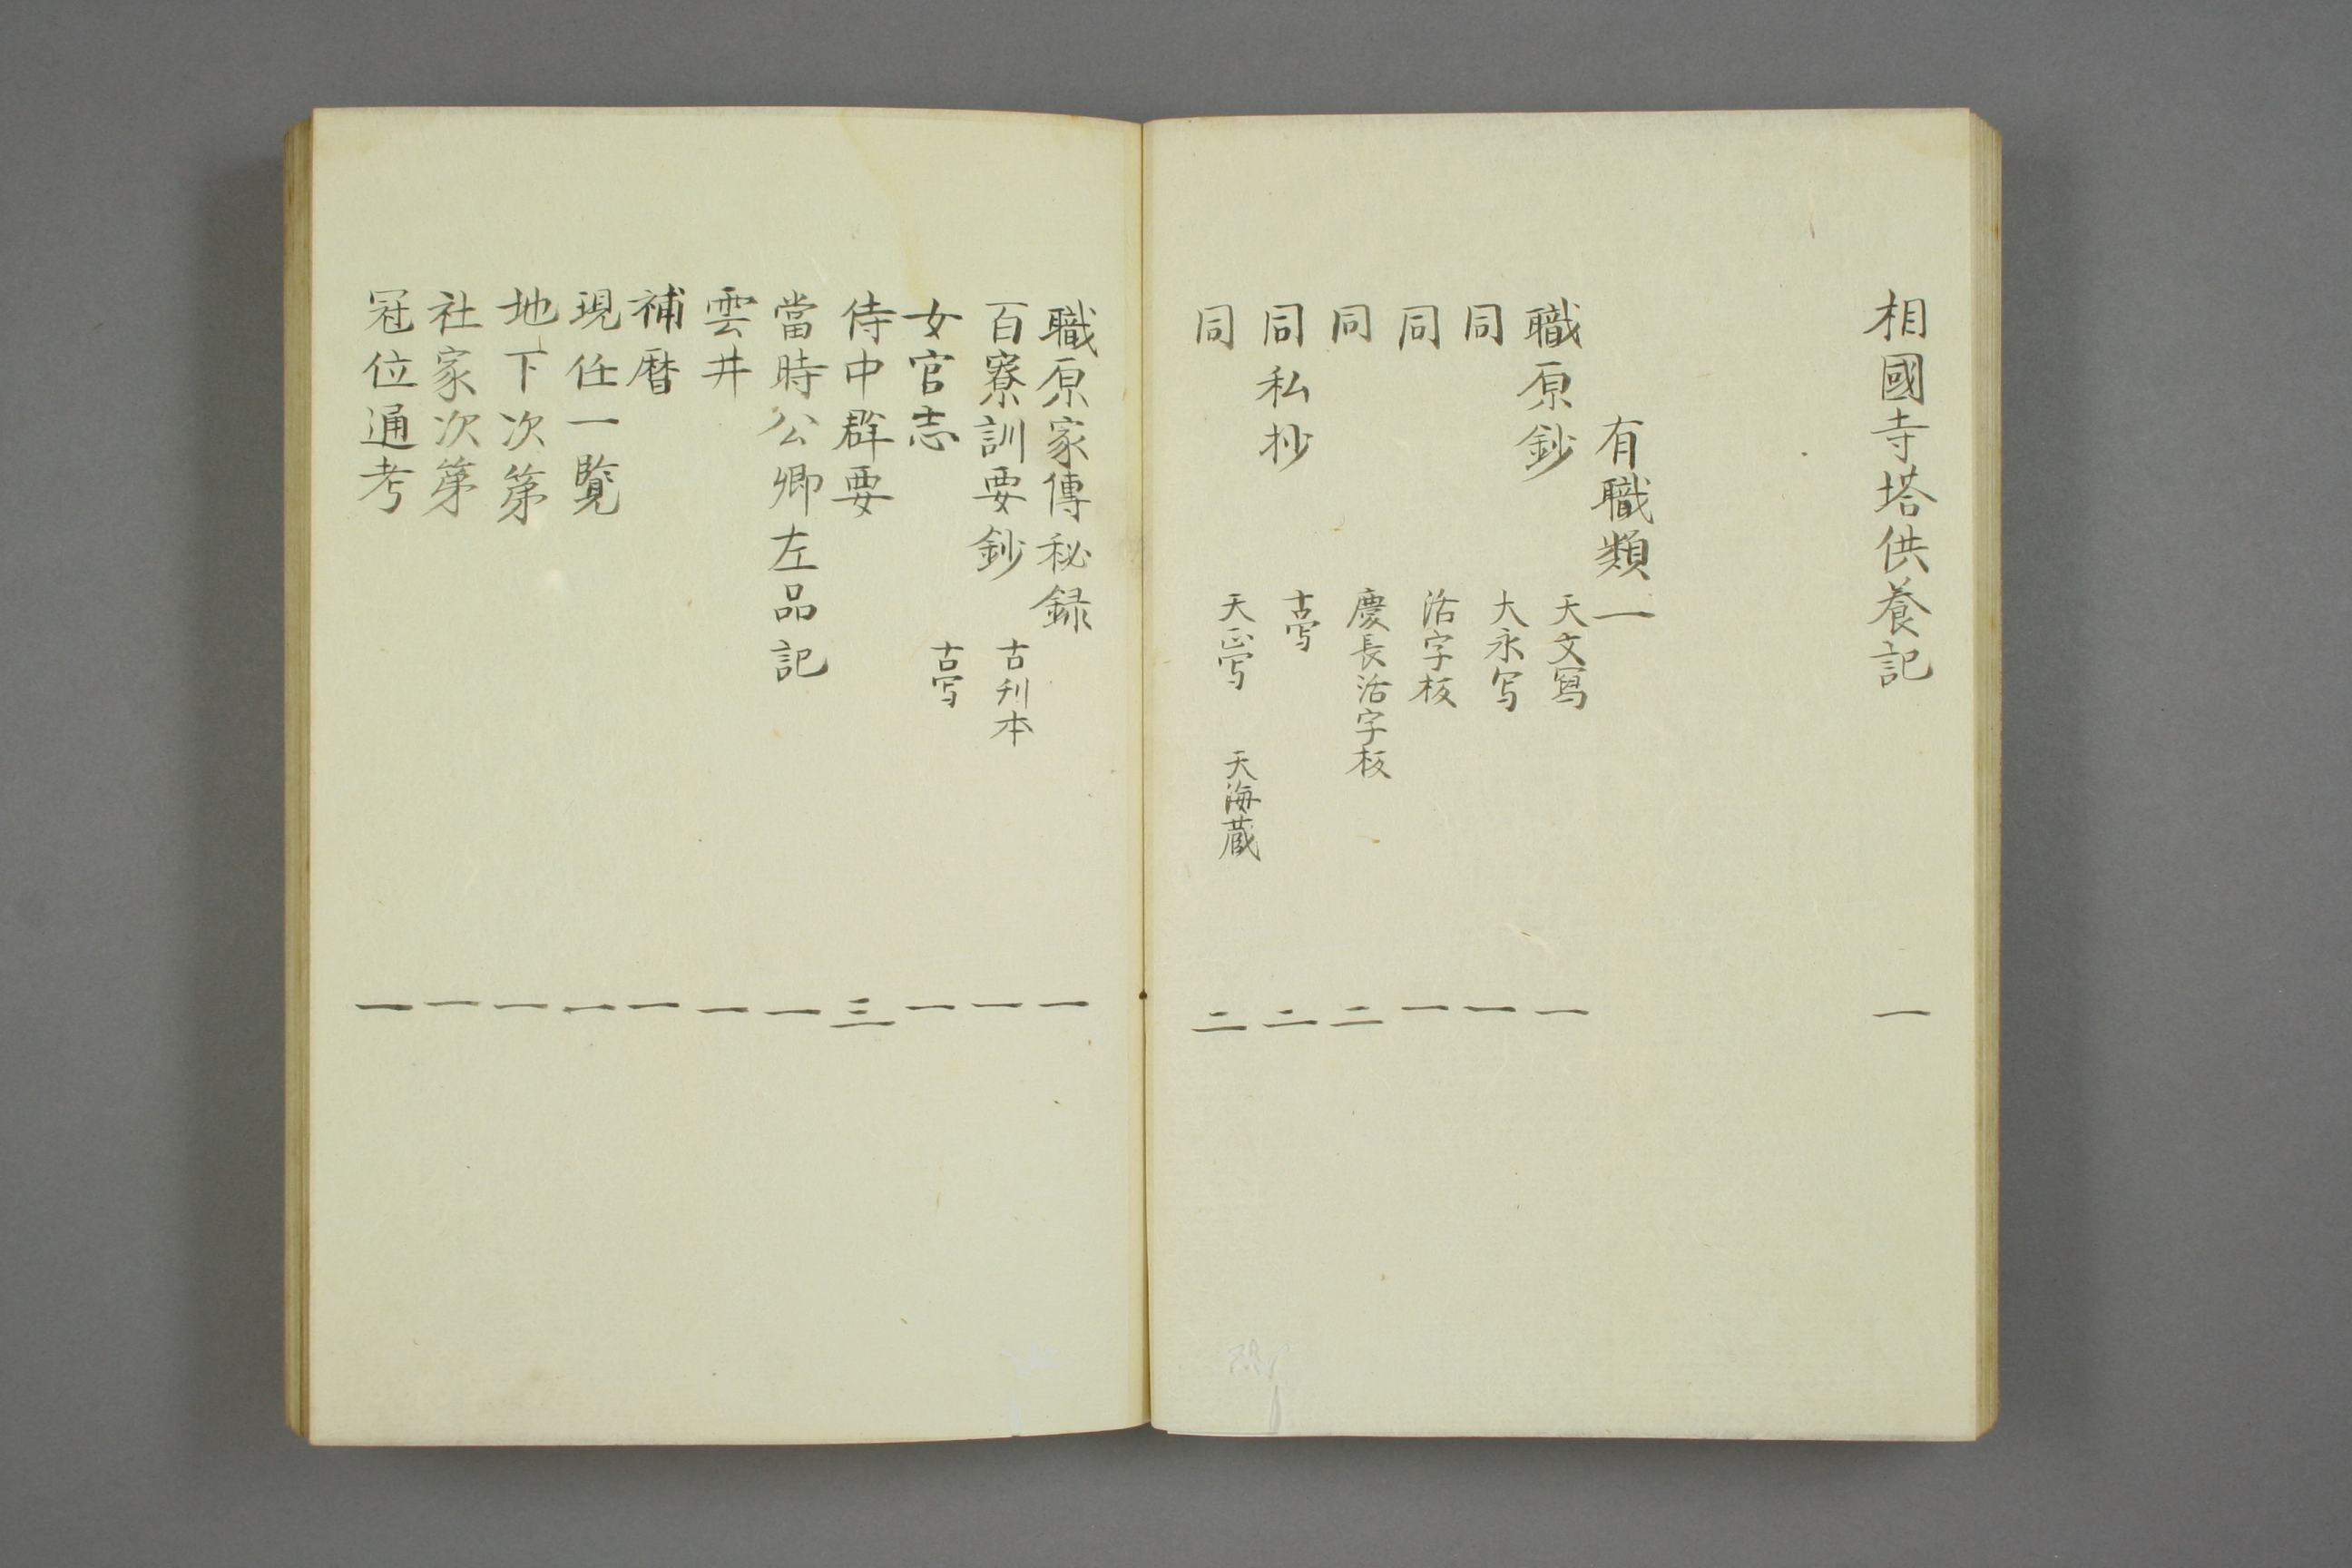 相國寺塔供養記 一
有職類一
職原鈔 天文寫 一
同 大永写 一
同 活字板 一
同 慶長活字板 二
同私抄 古写 二
同 天正写 天海蔵 二
職原家傳秘録 一
百寮訓要鈔 古刋本 一
女官志 古写 一
侍中群要 三
當時公卿左品記 一
雲井 一
補暦 一
現任一覧 一
地下次第 一
社家次第 一
冠位通考 一